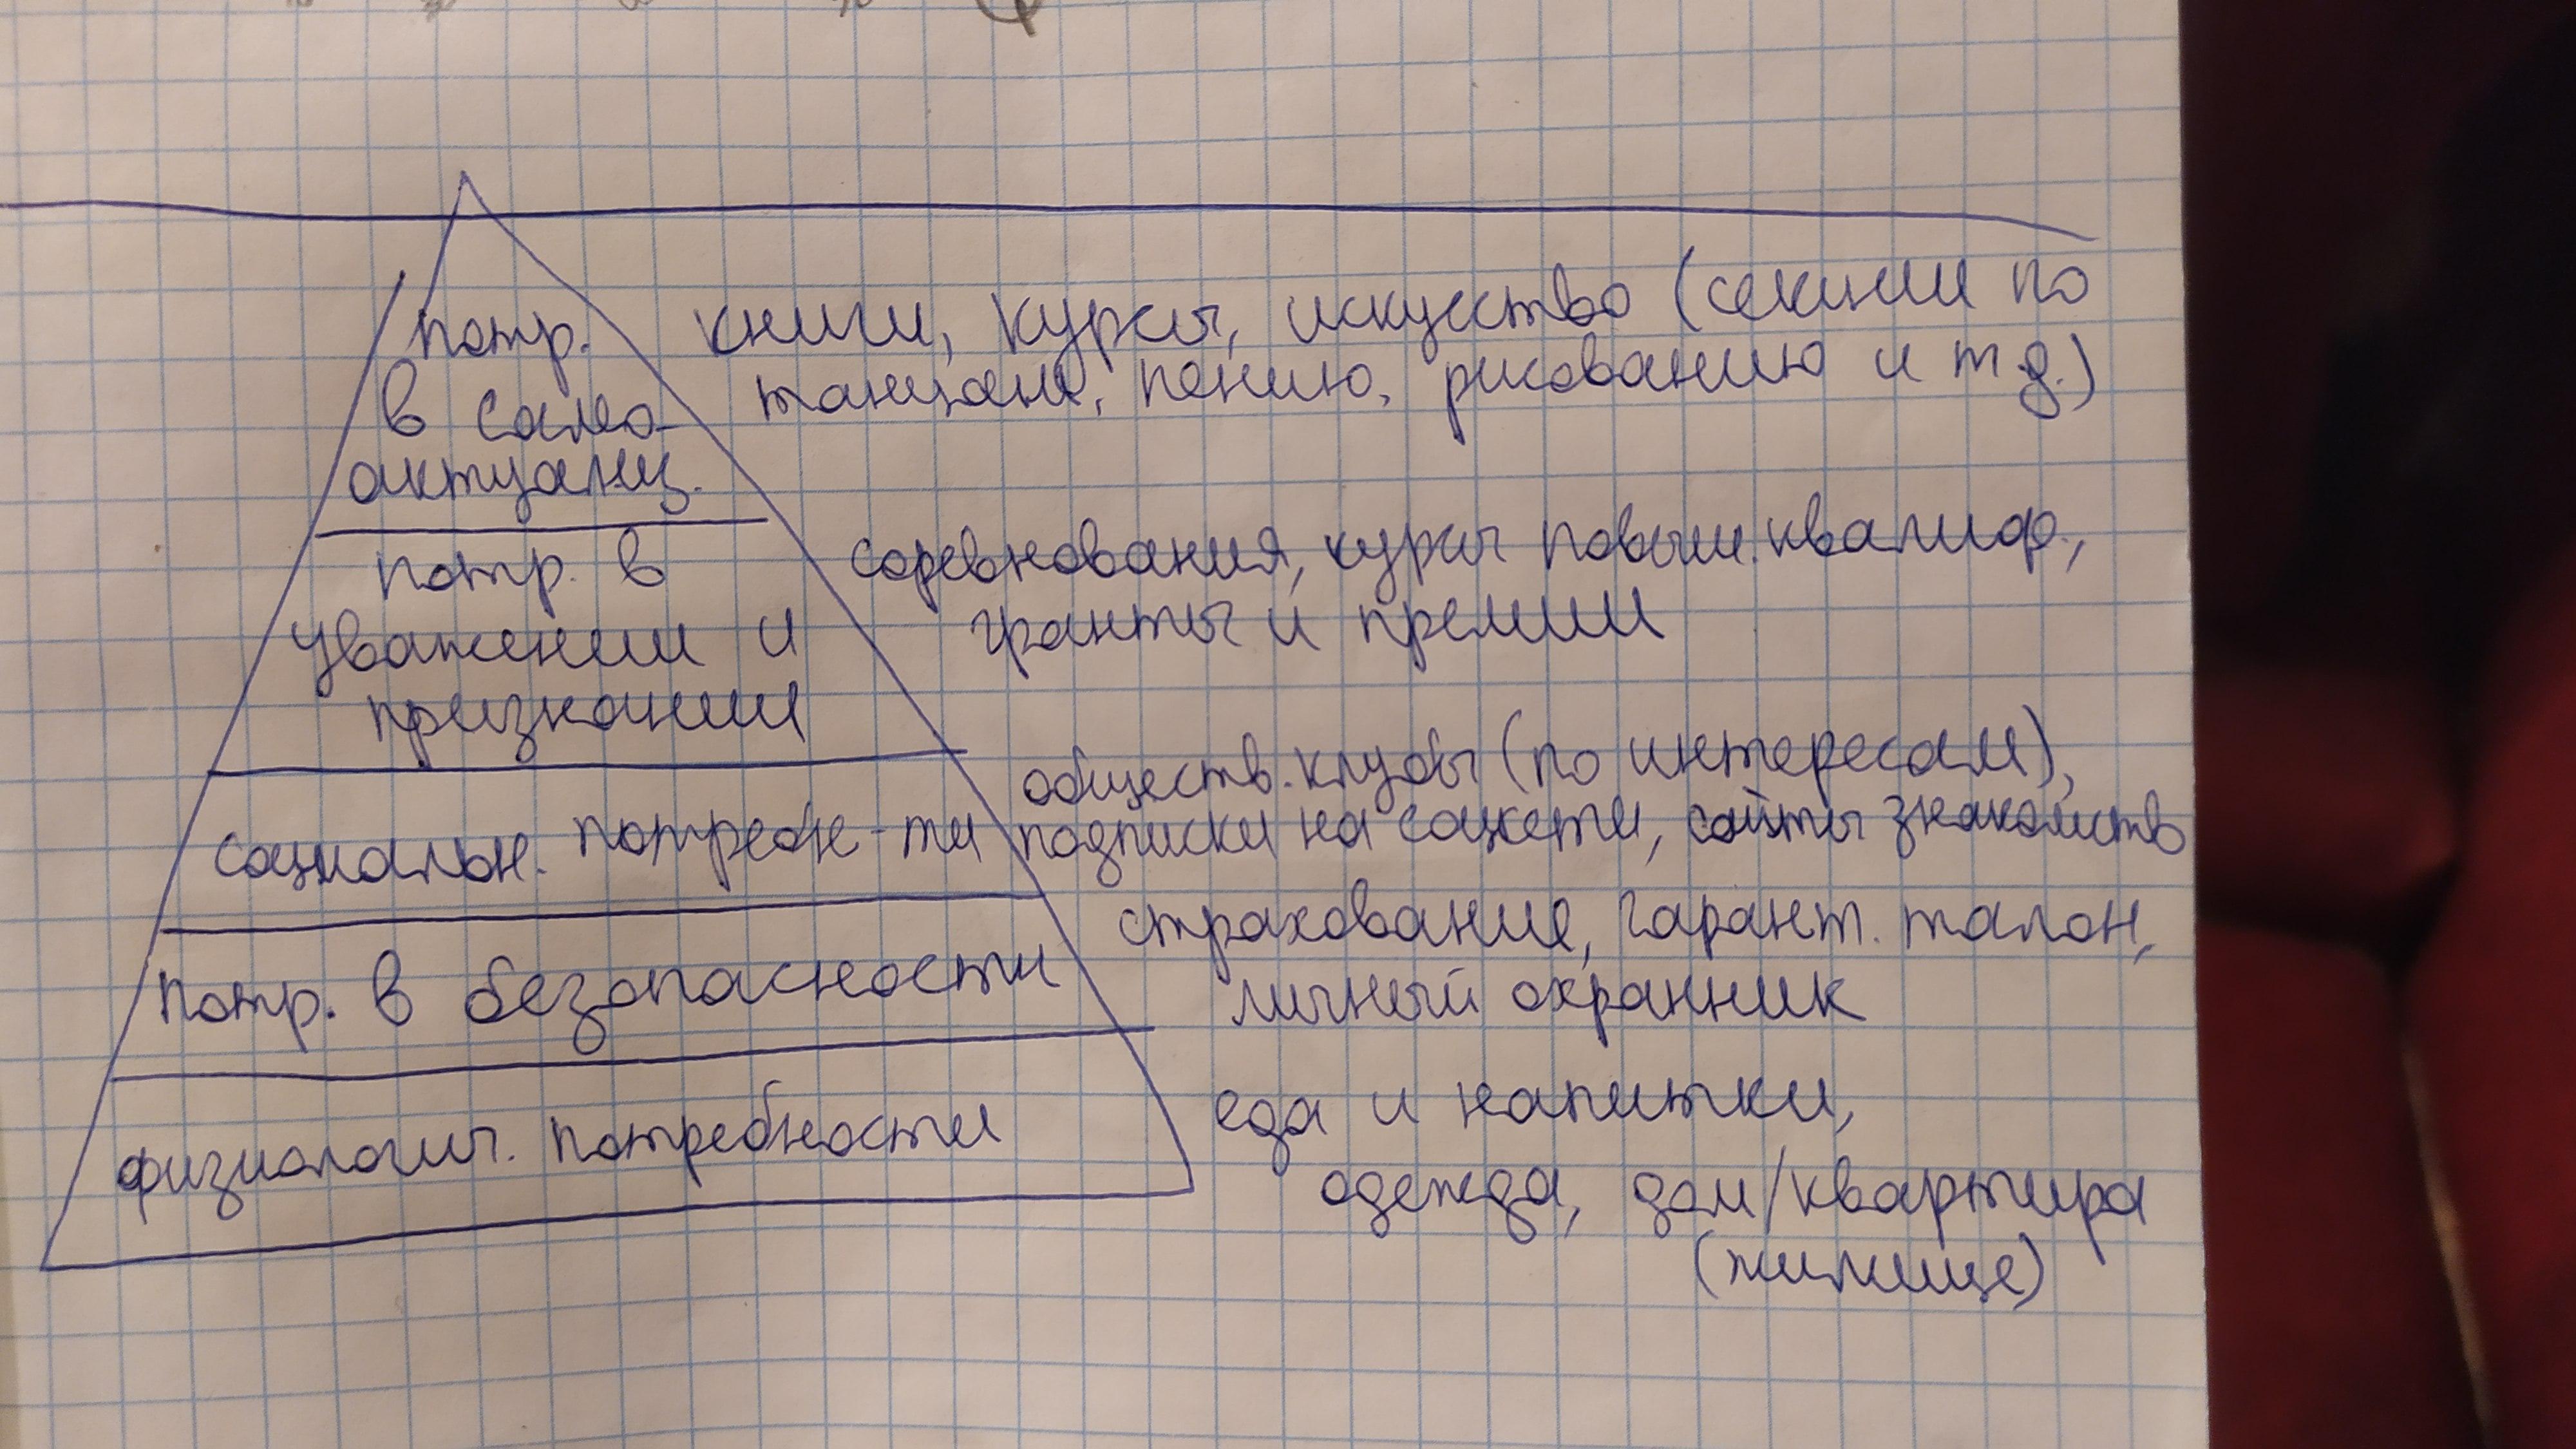 потр.
в само-
актуализ.
книги, курсы, искусство (секции по
танцам, пению, рисованию и т.д.)
потр. в
уважении и
признании
соревнования, курсы повыш. квалиф.,
гранты и премии
социальн. потребн-ти
обществ. клубы (по интересам),
подписки на соцсети, сайты знакомств
потр. в безопасности
страхование, гарант. талон,
личный охранник
физиологич. потребности
еда и напитки,
одежда, дом/квартира
(жилище)